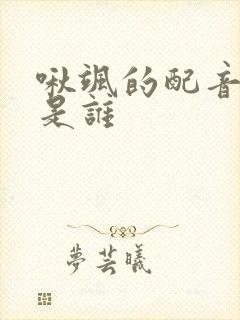 啾颯的配音
是誰
夢芸曦